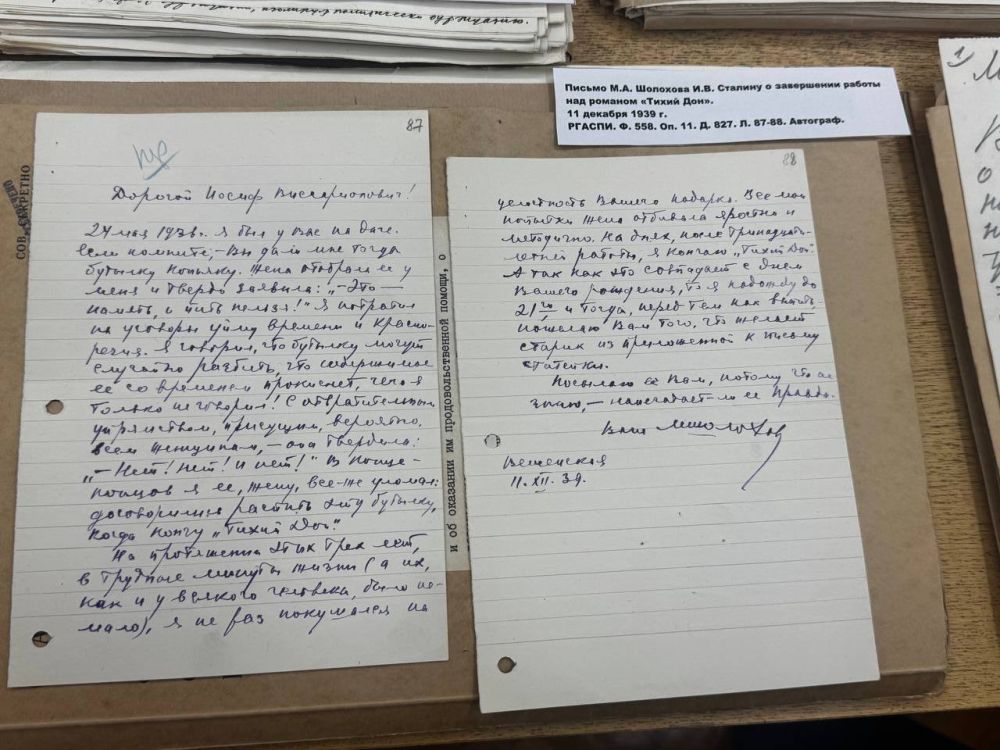 Письмо М.А. Шолохова И.В. Сталину о завершении работы
над романом «Тихий Дон».
11 декабря 1939 г.
РГАСПИ. Ф. 558. Оп. 11. Д. 827. Л. 87-88. Автограф.
87
Дорогой Иосиф Виссарионович!
24 мая 1936 г. я был у Вас на даче.
Если помните, – Вы дали мне тогда
бутылку коньяку. Жена отобрала ее у
меня и твердо заявила: „–Это –
память, и пить нельзя!" Я потратил
на уговоры уйму времени и красно-
речия. Я говорил, что бутылку могут
случайно разбить, что содержимое
ее со временем прокиснет, чего я
только не говорил! С отвратительным
упрямством, присущим, вероятно,
всем женщинам, – она твердила:
„–Нет! Нет! и нет!" В конце-
концов я ее, жену, все-же уломал:
договорились распить эту бутылку,
когда кончу „Тихий Дон".
На протяжении этих трех лет,
в трудные минуты жизни (а их,
как и у всякого человека, было не-
мало), я не раз покушался на
88
целостность Вашего подарка. Все мои
попытки жена отбивала яростно и
методично. На днях, после тринадцати-
летней работы, я кончаю „Тихий Дон".
А так как это совпадает с днем
Вашего рождения, то я подожду до
21го и тогда, перед тем как выпить,
пожелаю Вам того, что желает
старик из приложенной к письму
статейки.
Посылаю ее Вам, потому что не
знаю, – напечатает-ли ее Правда.
Ваш М. Шолохов
Вешенская
11.XII.39.
СОВ. СЕКРЕТНО
и об оказании им продовольственной помощи, о
1)